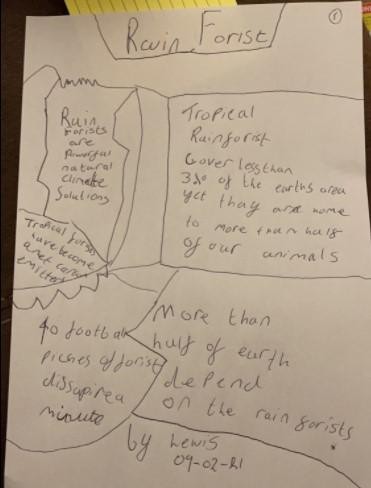 1
Rain Forist
Rain
forists
are
Powerful
natural
climate
Solutions
Tropical forists
have become
a net carbon
emitter
Tropical
Rainforist
Cover less than
3% of the earths area
yet thay are home
to more than half
of our animals
40 football
piches of forist
dissapirea
minute
More than
half of earth
depend
on the rain forists
by Lewis
09-02-21